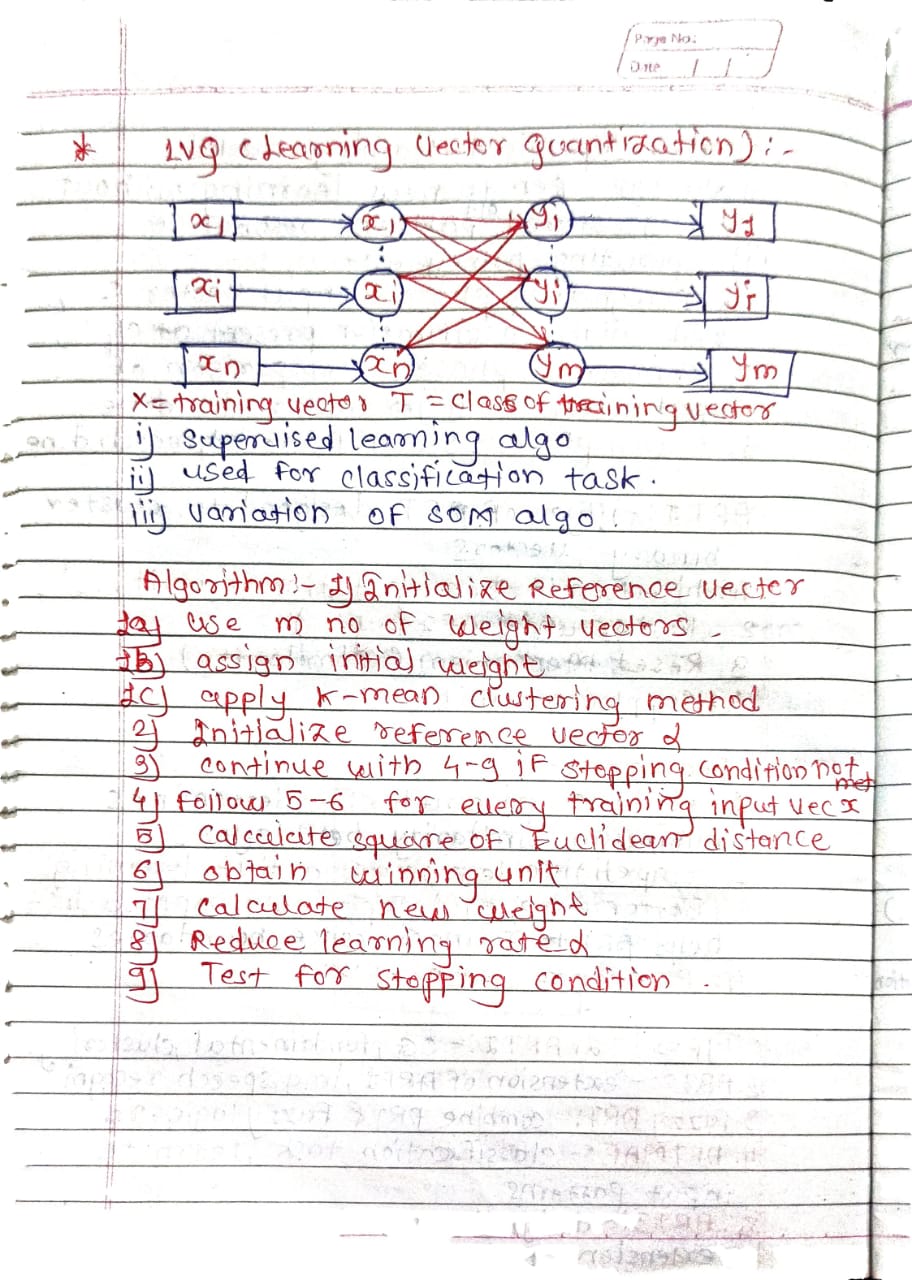 Page No:
Date / /
* LVQ (Learning Vector Quantization) :-
x1 x1 y1 y1
xi xi yi yi
xn xn ym ym
X = training vector T = class of training vector
i) Supervised learning algo
ii) used for classification task.
iii) variation of SOM algo.
Algorithm :- 1) Initialize Reference vector
1a) use m no of weight vectors.
1b) assign initial weight
1c) apply K-mean clustering method
2) Initialize reference vector α
3) continue with 4-9 if stopping condition not met
4) Follow 5-6 for every training input vec x
5) Calculate square of Euclidean distance
6) obtain winning unit
7) Calculate new weight
8) Reduce learning rate α
9) Test for stopping condition.